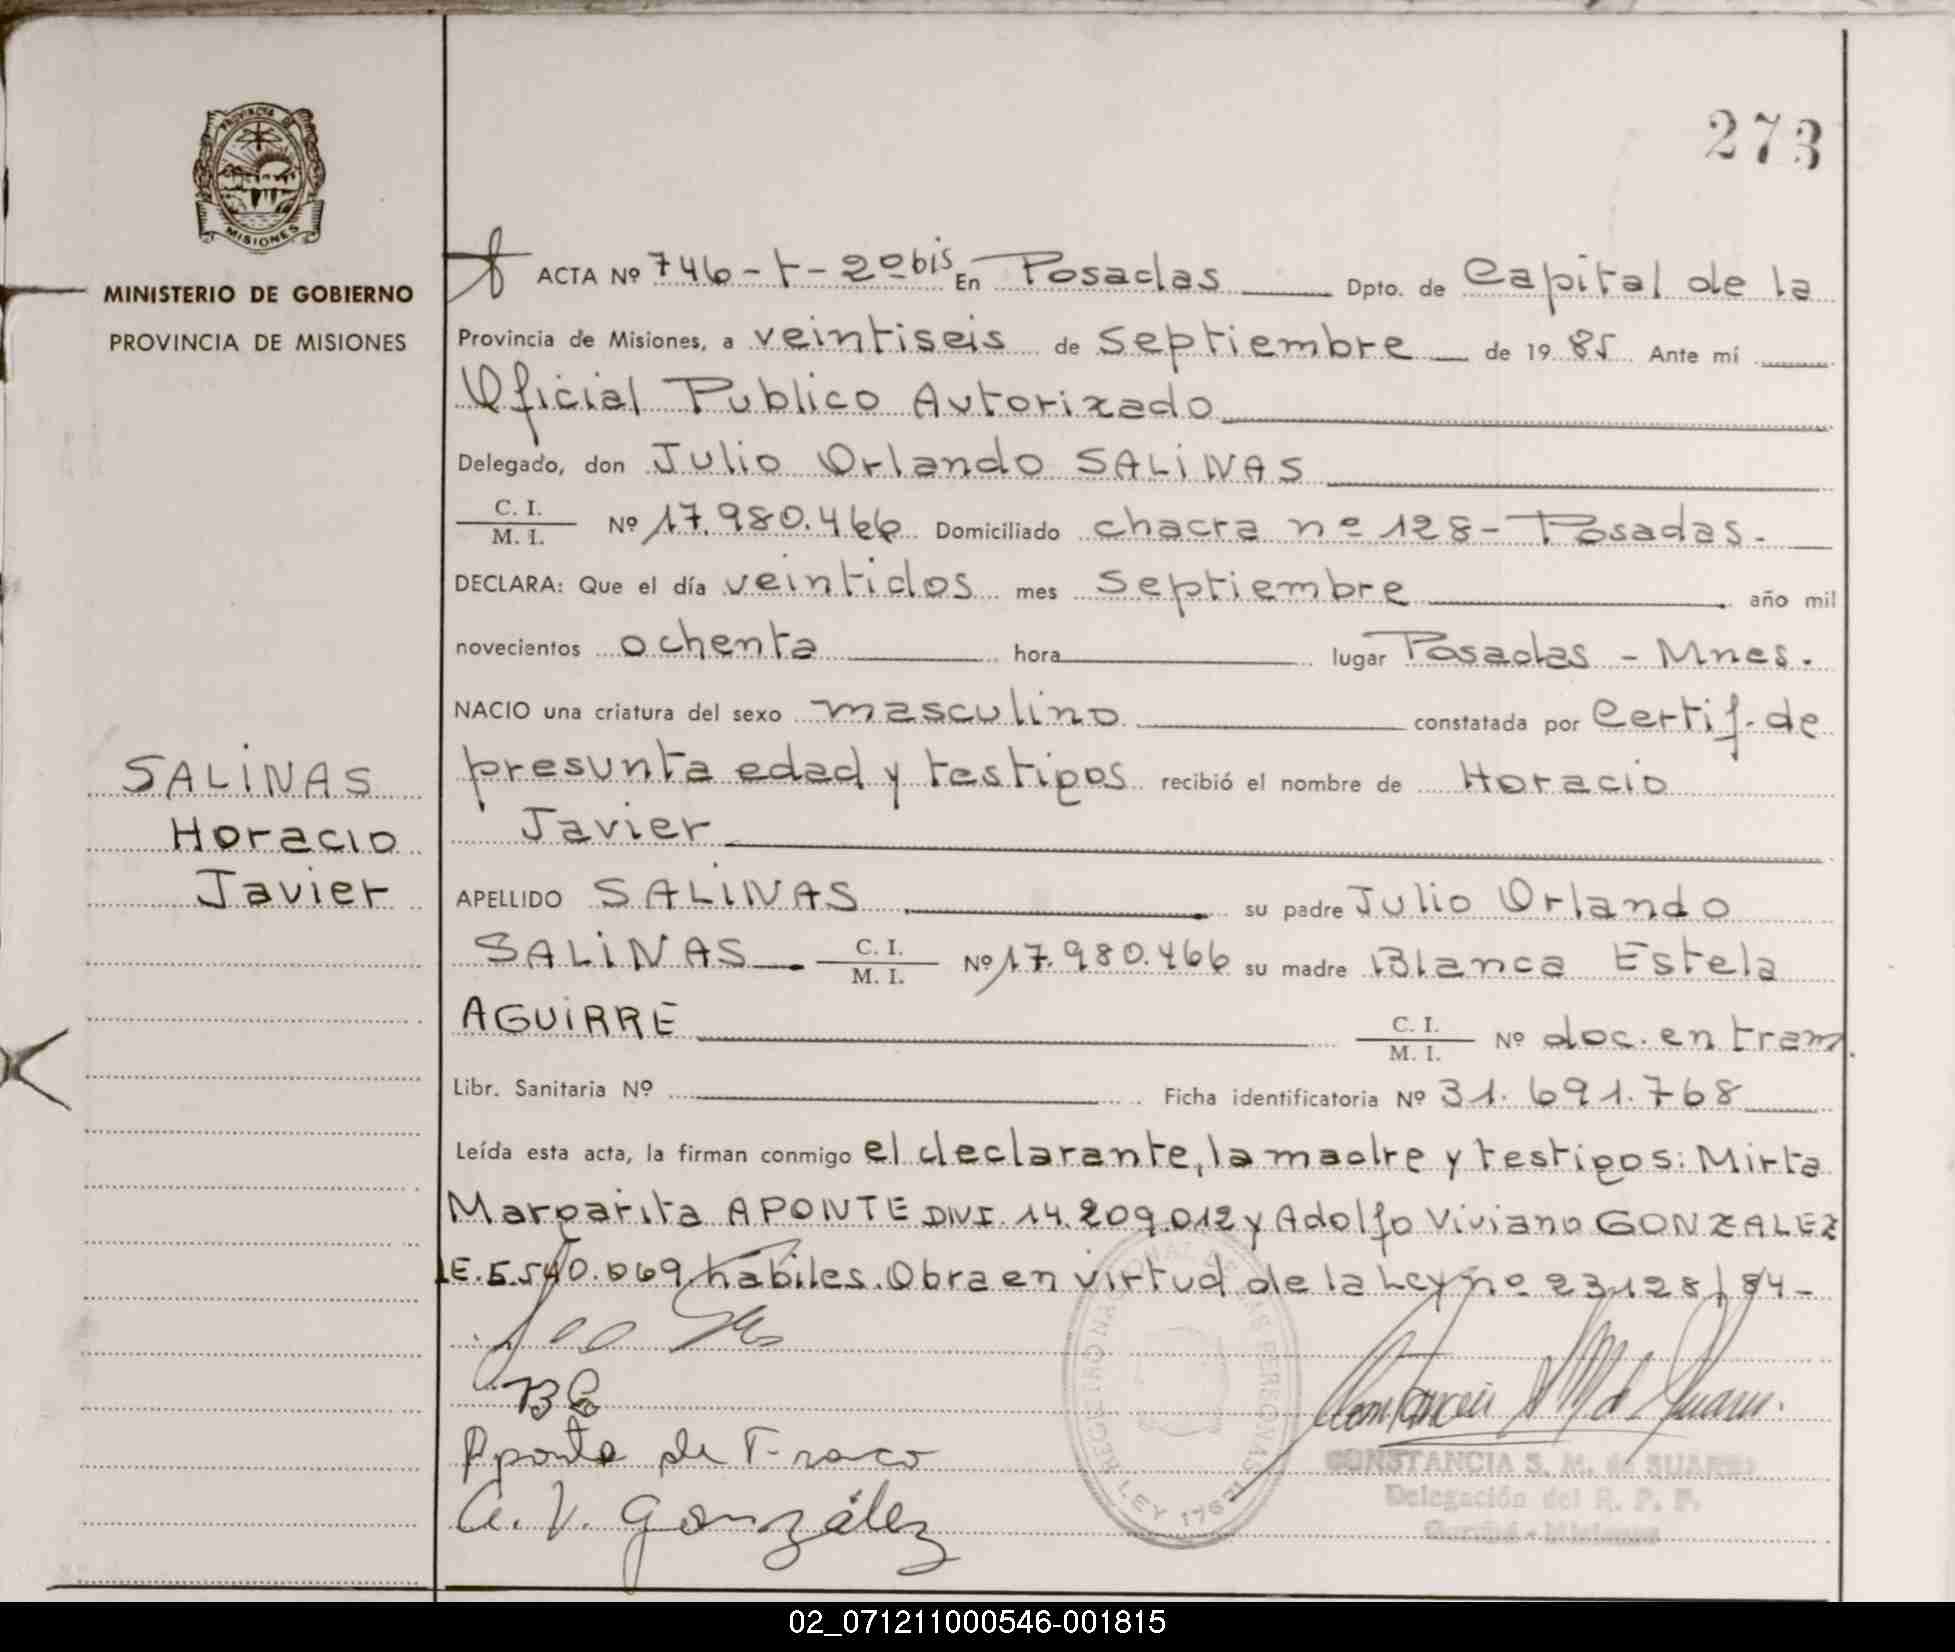 273
PROVINCIA DE
MISIONES
MINISTERIO DE GOBIERNO
PROVINCIA DE MISIONES
ACTA Nº 746-t-2º bis En Posadas Dpto. de Capital de la
Provincia de Misiones, a veintiseis de septiembre de 19 85 Ante mí
Oficial Publico Autorizado
Delegado, don Julio Orlando SALiNAS
C. I.
M. I. Nº 17.980.466 Domiciliado chacra nº 128- Posadas.
DECLARA: Que el día veintidos mes septiembre año mil
novecientos ochenta hora lugar Posadas - Mnes.
NACIO una criatura del sexo masculino constatada por Certif. de
presunta edad y testigos recibió el nombre de Horacio
Javier
SALiNAS
Horacio
Javier
APELLIDO SALiNAS su padre Julio Orlando
SALiNAS C. I.
M. I. Nº 17.980.466 su madre Blanca Estela
AGUiRRE C. I.
M. I. Nº doc. en tram.
Libr. Sanitaria Nº Ficha identificatoria Nº 31.691.768
Leída esta acta, la firman conmigo el declarante, la madre y testigos: Mirta
Margarita APONTE DNI. 14.209.012 y Adolfo Viviano GONZALEZ
LE. 5.540.069 habiles. Obra en virtud de la Ley nº 23128/84-
Aponte de
A. V. González
CONSTANCIA S. M. de SUAREZ
Delegación del R. P. P.
LEY 17671
02_071211000546-001815